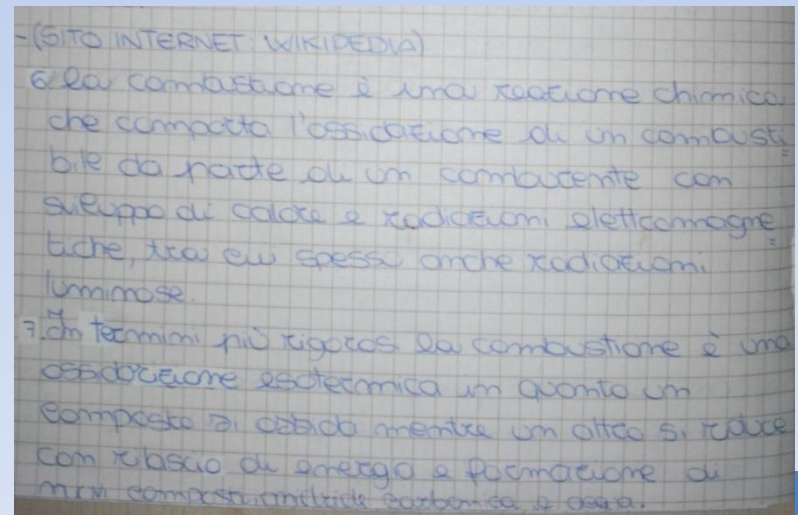 -(SITO INTERNET: WIKIPEDIA)
6. La combustione è una reazione chimica
che comporta l'ossidazione di un combusti
bile da parte di un comburente con
sviluppo di calore e radiazioni elettromagne
tiche, tra cui spesso anche radiazioni
luminose.
7. In termini più rigorosi la combustione è una
ossidazione esotermica in quanto un
composto si ossida mentre un altro si riduce
con rilascio di energia e formazione di
nuovi composti, anidride carbonica e acqua.